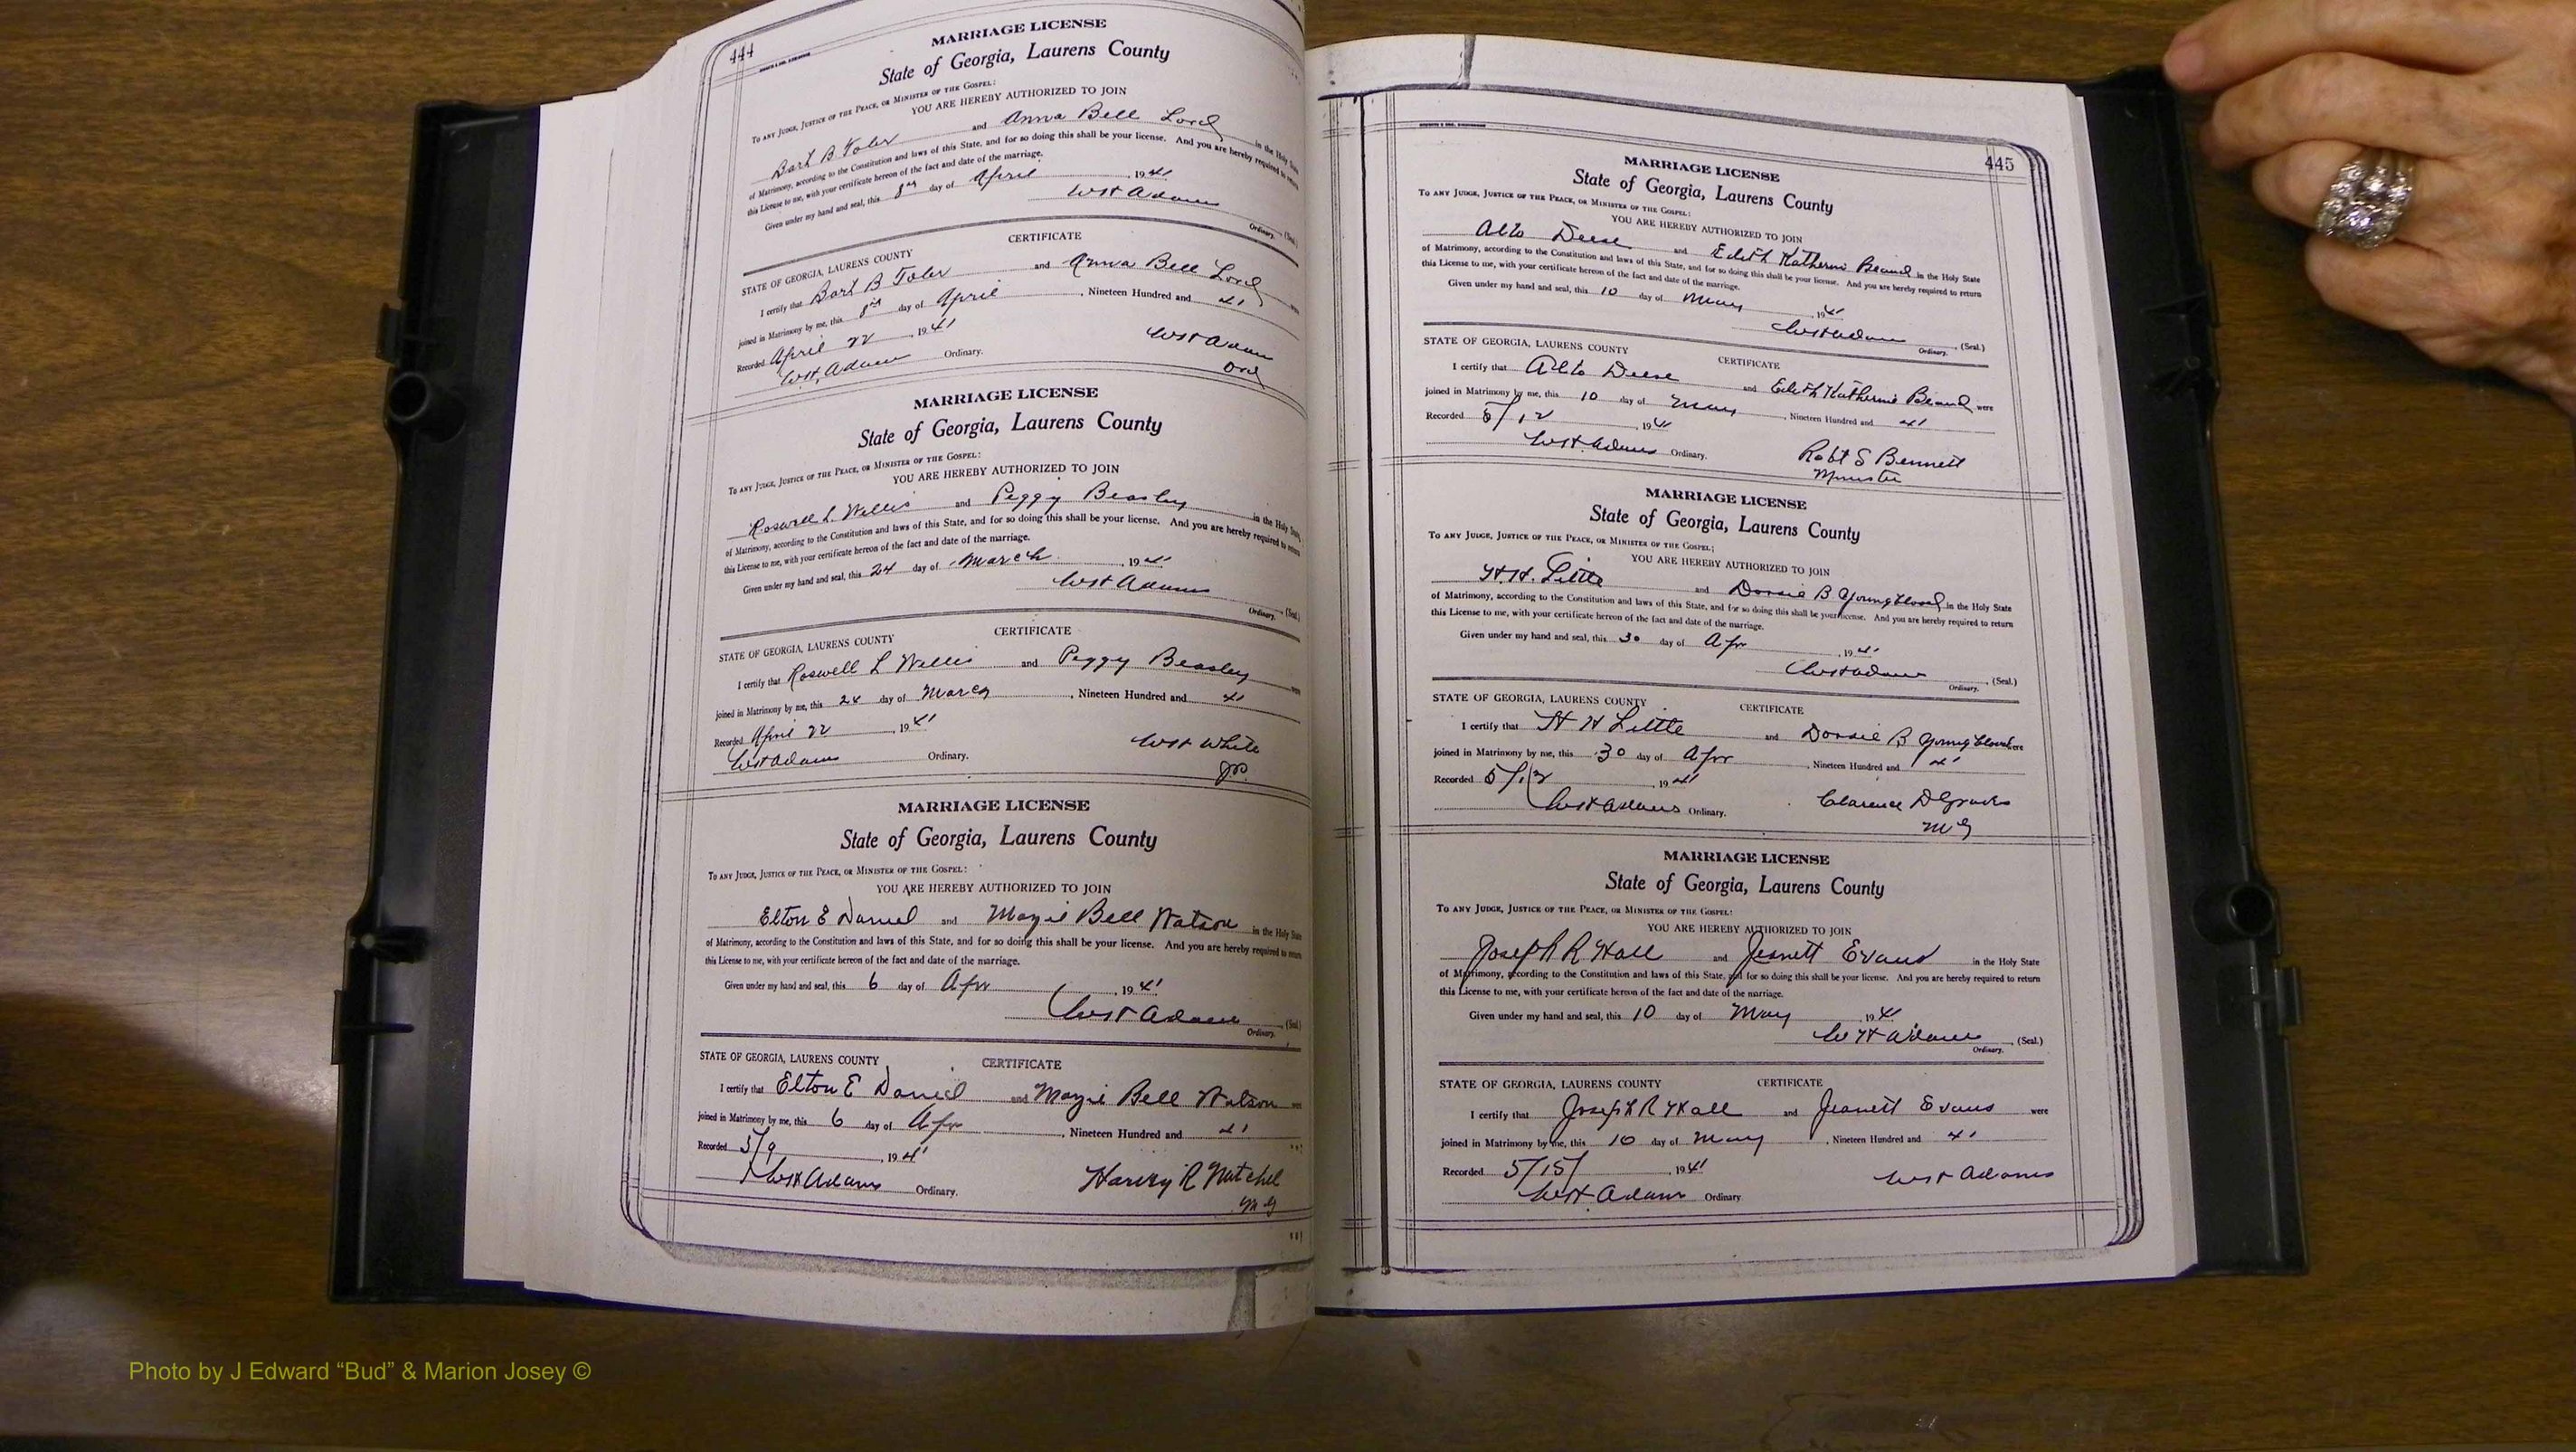 444
MARRIAGE LICENSE
State of Georgia, Laurens County
To any Judge, Justice of the Peace, or Minister of the Gospel:
YOU ARE HEREBY AUTHORIZED TO JOIN
Bart B Toler and Anna Bell Lord in the Holy State
of Matrimony, according to the Constitution and laws of this State, and for so doing this shall be your license. And you are hereby required to return
this License to me, with your certificate hereon of the fact and date of the marriage.
Given under my hand and seal, this 8th day of April, 1941
W H Adams (Seal)
Ordinary.
CERTIFICATE
STATE OF GEORGIA, LAURENS COUNTY
I certify that Bart B Toler and Anna Bell Lord were
joined in Matrimony by me, this 8th day of April, Nineteen Hundred and 41
Recorded April 22, 1941
W H Adams Ordinary.
W H Adams
Ord
MARRIAGE LICENSE
State of Georgia, Laurens County
To any Judge, Justice of the Peace, or Minister of the Gospel:
YOU ARE HEREBY AUTHORIZED TO JOIN
Roswell L. Willis and Peggy Beasley in the Holy State
of Matrimony, according to the Constitution and laws of this State, and for so doing this shall be your license. And you are hereby required to return
this License to me, with your certificate hereon of the fact and date of the marriage.
Given under my hand and seal, this 24 day of March, 1941
W H Adams (Seal)
Ordinary.
CERTIFICATE
STATE OF GEORGIA, LAURENS COUNTY
I certify that Roswell L Willis and Peggy Beasley were
joined in Matrimony by me, this 24 day of March, Nineteen Hundred and 41
Recorded April 22, 1941
W H Adams Ordinary.
W H White
JP
MARRIAGE LICENSE
State of Georgia, Laurens County
To any Judge, Justice of the Peace, or Minister of the Gospel:
YOU ARE HEREBY AUTHORIZED TO JOIN
Elton E Daniel and Mazie Bell Watson in the Holy State
of Matrimony, according to the Constitution and laws of this State, and for so doing this shall be your license. And you are hereby required to return
this License to me, with your certificate hereon of the fact and date of the marriage.
Given under my hand and seal, this 6 day of Apr, 1941
W H Adams (Seal)
Ordinary.
STATE OF GEORGIA, LAURENS COUNTY CERTIFICATE
I certify that Elton E Daniel and Mazie Bell Watson were
joined in Matrimony by me, this 6 day of Apr, Nineteen Hundred and 41
Recorded 5/9, 1941
W H Adams Ordinary.
Harvey R Mitchel
M G
445
MARRIAGE LICENSE
State of Georgia, Laurens County
To any Judge, Justice of the Peace, or Minister of the Gospel:
YOU ARE HEREBY AUTHORIZED TO JOIN
Alto Deese and Edith Katherine in the Holy State
of Matrimony, according to the Constitution and laws of this State, and for so doing this shall be your license. And you are hereby required to return
this License to me, with your certificate hereon of the fact and date of the marriage.
Given under my hand and seal, this 10 day of May, 1941
W H Adams (Seal.)
Ordinary.
STATE OF GEORGIA, LAURENS COUNTY CERTIFICATE
I certify that Alto Deese and Edith Katherine were
joined in Matrimony by me, this 10 day of May, Nineteen Hundred and 41
Recorded 5/12, 1941
W H Adams Ordinary.
Robt S Bennett
Minister
MARRIAGE LICENSE
State of Georgia, Laurens County
To any Judge, Justice of the Peace, or Minister of the Gospel:
YOU ARE HEREBY AUTHORIZED TO JOIN
H. H. Little and Dossie B Youngblood in the Holy State
of Matrimony, according to the Constitution and laws of this State, and for so doing this shall be your license. And you are hereby required to return
this License to me, with your certificate hereon of the fact and date of the marriage.
Given under my hand and seal, this 30 day of Apr, 1941
W H Adams (Seal.)
Ordinary.
STATE OF GEORGIA, LAURENS COUNTY CERTIFICATE
I certify that H H Little and Dossie B Youngblood were
joined in Matrimony by me, this 30 day of Apr, Nineteen Hundred and 41
Recorded 5/12, 1941
W H Adams Ordinary.
Clarence D Graves
M G
MARRIAGE LICENSE
State of Georgia, Laurens County
To any Judge, Justice of the Peace, or Minister of the Gospel:
YOU ARE HEREBY AUTHORIZED TO JOIN
Joseph R Hall and Jeanett Evans in the Holy State
of Matrimony, according to the Constitution and laws of this State, and for so doing this shall be your license. And you are hereby required to return
this License to me, with your certificate hereon of the fact and date of the marriage.
Given under my hand and seal, this 10 day of May, 1941
W H Adams (Seal.)
Ordinary.
STATE OF GEORGIA, LAURENS COUNTY CERTIFICATE
I certify that Joseph R Hall and Jeanett Evans were
joined in Matrimony by me, this 10 day of May, Nineteen Hundred and 41
Recorded 5/15/, 1941
W H Adams
W H Adams Ordinary
Photo by J Edward “Bud” & Marion Josey ©